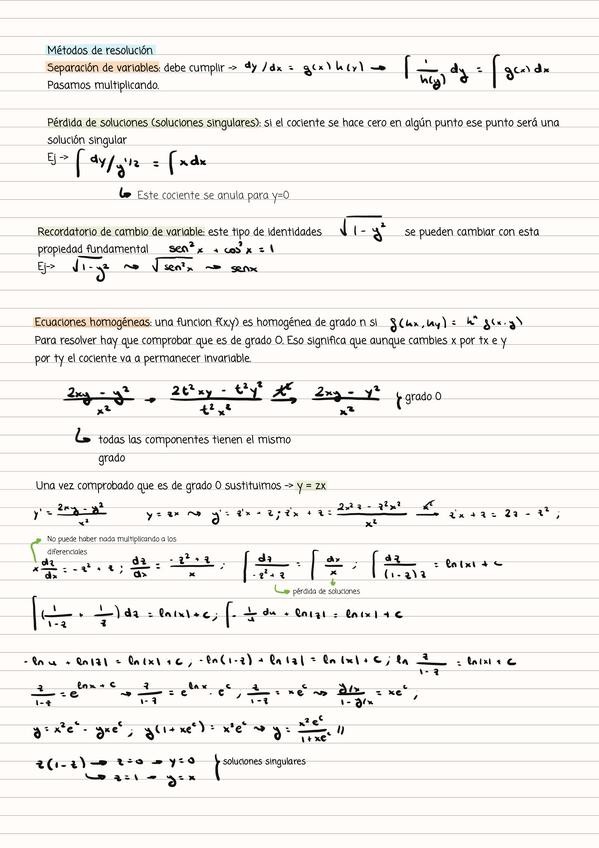 Métodos de resolución
Separación de variables: debe cumplir -> dy/dx = g(x) h(y) → ∫ 1/h(y) dy = ∫ g(x) dx
Pasamos multiplicando.
Pérdida de soluciones (soluciones singulares): si el cociente se hace cero en algún punto ese punto será una
solución singular
Ej -> ∫ dy/y^1/2 = ∫ x dx
↳ Este cociente se anula para y=0
Recordatorio de cambio de variable: este tipo de identidades √(1-y²) se pueden cambiar con esta
propiedad fundamental sen²x + cos²x = 1
Ej-> √(1-y²) ⤳ √(sen²x) ⤳ senx
Ecuaciones homogéneas: una funcion f(x,y) es homogénea de grado n si f(hx,hy) = hⁿ f(x·y)
Para resolver hay que comprobar que es de grado 0. Eso significa que aunque cambies x por tx e y
por ty el cociente va a permanecer invariable.
(2xy - y²)/x² → (2t²xy - t²y²)/(t²x²) → t² (2xy - y²)/x² } grado 0
↳ todas las componentes tienen el mismo
grado
Una vez comprobado que es de grado 0 sustituimos -> y = zx
y' = (2xy - y²)/x² y = zx ⤳ y' = z'x - z ; z'x + z = (2x²z - z²x²)/x² → x² z'x + z = 2z - z² ;
No puede haber nada multiplicando a los
diferenciales
x dz/dx = -z² + z ; dz/dx = (-z² + z)/x ; ∫ dz/(-z² + z) = ∫ dx/x ; ∫ dz/((1-z)z) = ln|x| + c
↳ pérdida de soluciones
∫ (1/(1-z) + 1/z) dz = ln|x| + c ; ∫ - 1/u du + ln|z| = ln|x| + c
- ln u + ln|z| = ln|x| + c , -ln(1-z) + ln|z| = ln|x| + c ; ln z/(1-z) = ln|x| + c
z/(1-z) = e^(lnx + c) → z/(1-z) = e^(lnx) · e^c , z/(1-z) = xe^c ⤳ (y/x)/(1-y/x) = xe^c ,
y = x²e^c - yxe^c ; y(1+xe^c) = x²e^c ⤳ y = x²e^c/(1+xe^c) //
z(1-z) → z=0 → y=0 } soluciones singulares
↳ z=1 → y=x